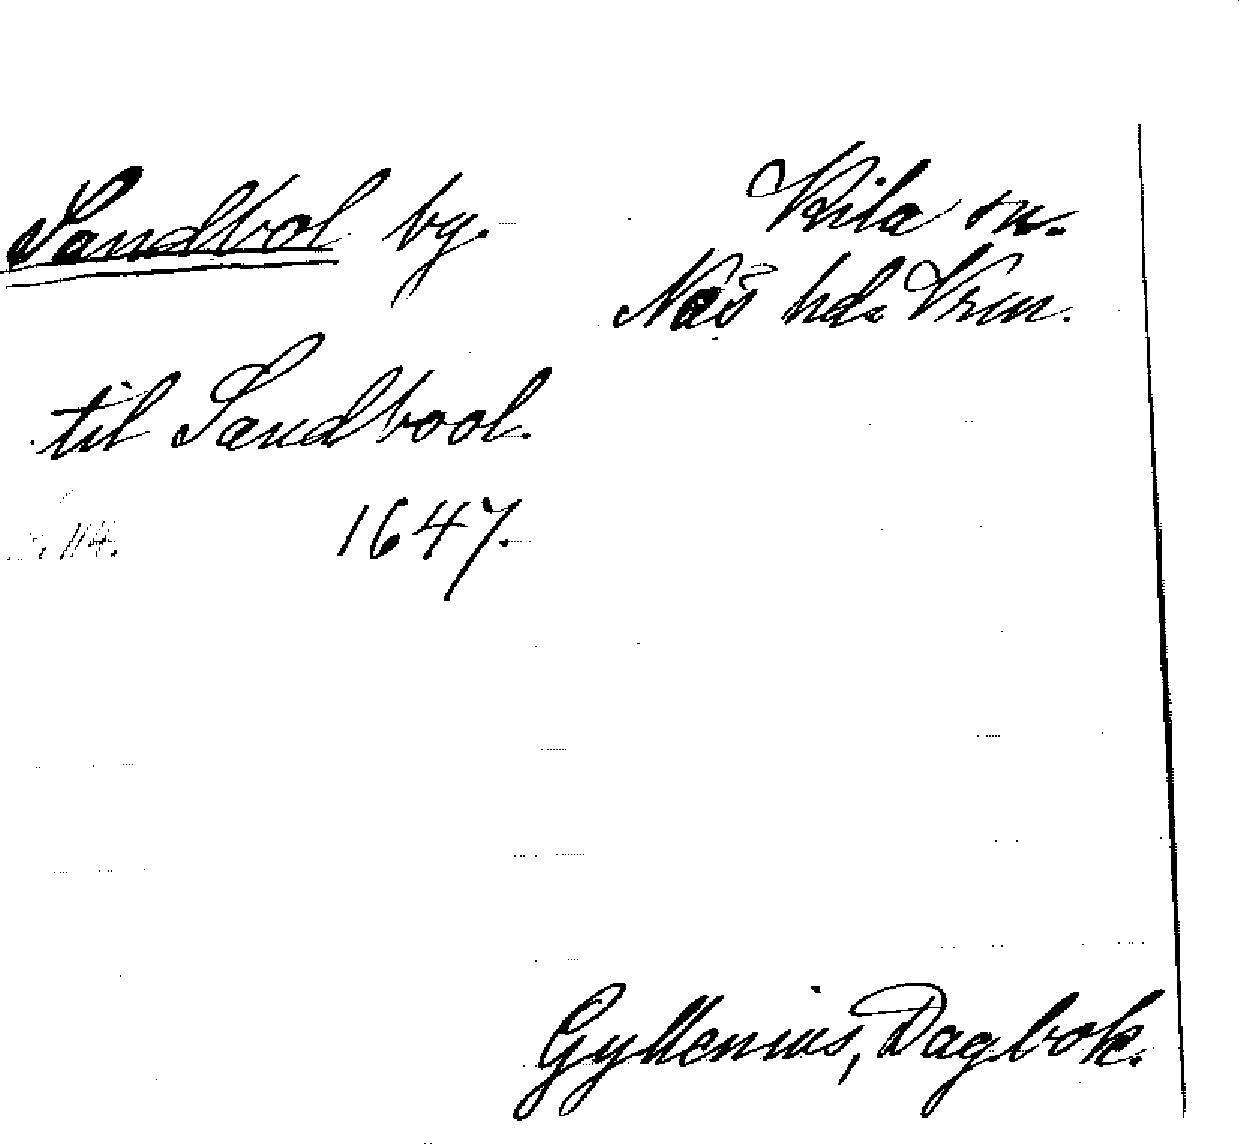 Sandbol by.
Kila sn.
Näs hd. Vrm.
til Sandbool.
1647.
s. 114.
Gyllenius, Dagbok.